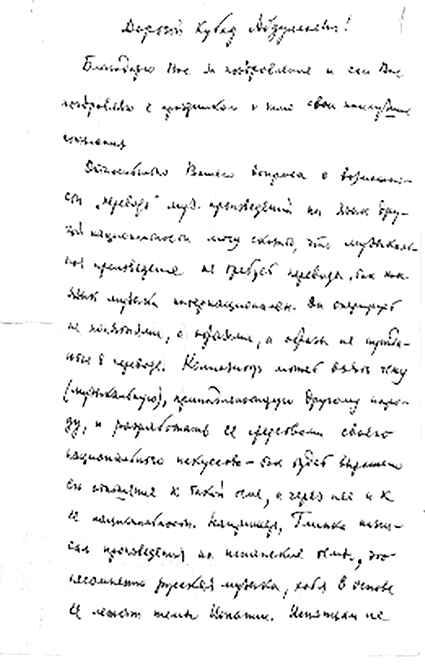 Дорогой Кубад Абдулаевич!
Благодарю Вас за поздравления и сам Вас
поздравляю с праздником и шлю свои наилучшие
пожелания
Относительно Вашего вопроса о возможно-
сти "перевода" муз. произведений на язык дру-
гой национальности могу сказать, что музыкаль-
ное произведение не требует перевода, так как
язык музыки интернационален. Он оперирует
не понятиями, а образами, а образы не нужда-
ются в переводе. Композитор может взять тему
(музыкальную), принадлежащую другому наро-
ду, и разработать её средствами своего
национального искусства - так будет выражено
его отношение к такой теме, а через неё и к
её национальности. Например, Глинка напи-
сал произведения на испанские темы, это
несомненно русская музыка, хотя в основе
её лежат темы Испании. Испанцам не